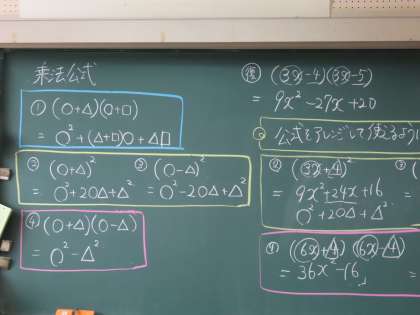 乗法公式
① (○+△)(○+□)
= ○²+(△+□)○+△□
② (○+△)²
= ○²+2○△+△²
③ (○-△)²
= ○²-2○△+△²
④ (○+△)(○-△)
= ○²-△²
(3x-4)(3x-5)
= 9x²-27x+20
公式をアレンジして使えるよう
② (3x+4)²
= 9x²+24x+16
○²+2○△+△²
(6x+4)(6x-4)
= 36x-16